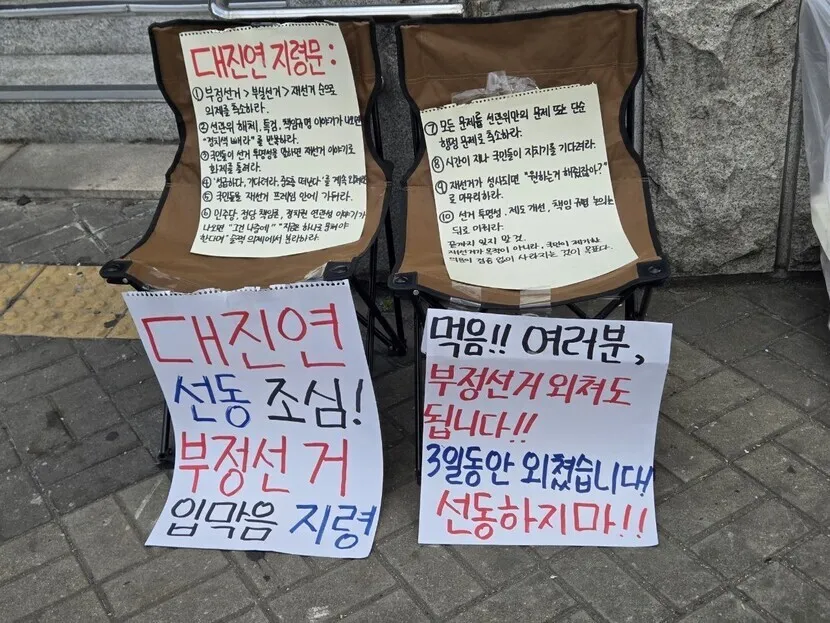 대진연 지령문 :
① 부정선거 > 부실선거 > 재선거 순으로
의제를 축소하라.
② 선관위 해체, 특검, 책임규명 이야기가 나오면
"정치색 빼라"를 반복하라.
③ 국민들이 선거 투명성을 말하면 재선거 이야기로
화제를 돌려라.
④ '성급하다, 기다려라, 중도층 떠난다'를 계속
⑤ 국민들을 재선거 프레임 안에 가둬라.
⑥ 민주당, 정당 책임론, 정치권 연관성 이야기가
나오면 "그건 나중에" "지금은 하나로 뭉쳐야
한다며" 논점 의제에서 분리하라.
⑦ 모든 문제를 선관위만의 문제 또는 단순
행정 문제로 축소하라.
⑧ 시간이 지나 국민들이 지치기를 기다려라.
⑨ 재선거가 성사되면 "원하는거 해줬잖아?"
로 마무리하라.
⑩ 선거 투명성, 제도 개선, 책임 규명 논의는
뒤로 미뤄라.
끝까지 잊지 말 것.
재선거가 목적이 아니라, 국민이 제기한
의혹이 검증 없이 사라지는 것이 목표다.
대진연
선동 조심!
부정선거
입막음 지령
먹음!! 여러분,
부정선거 외쳐도
됩니다!!
3일동안 외쳤습니다!
선동하지마!!